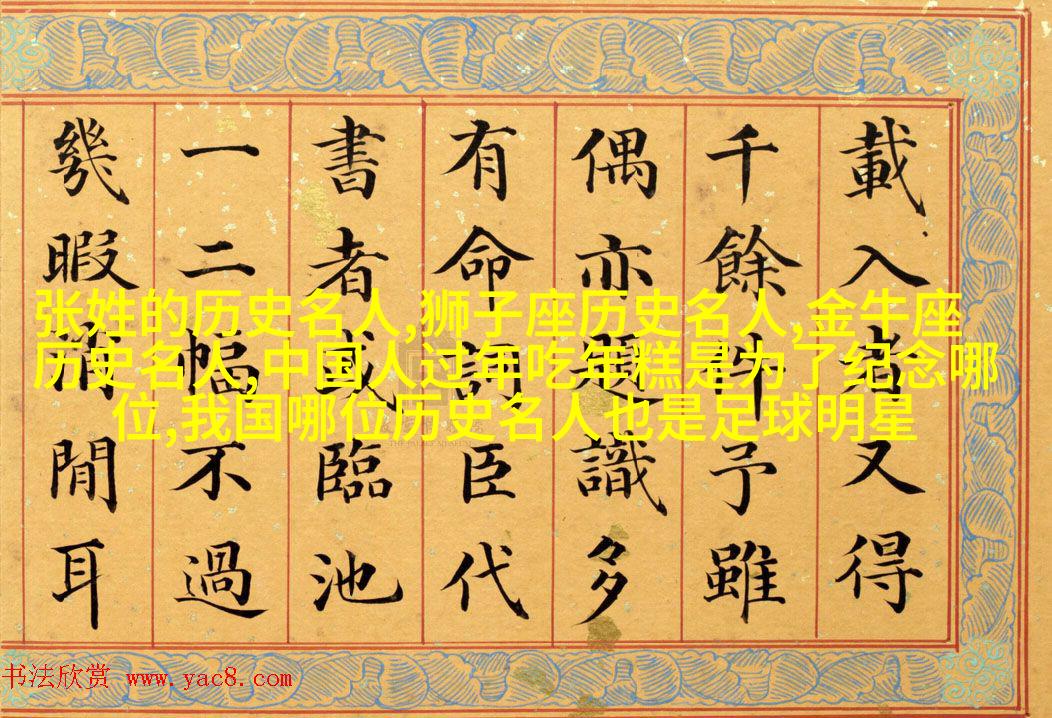 載入者又得
千餘件予雖
偶亦題識多
有命詞臣代
書者或臨池
一二幅不過
幾暇消閒耳
张姓的历史名人,狮子座历史名人,金牛座
历史名人,中国人过年吃年糕是为了纪念哪
位,我国哪位历史名人也是足球明星
书法欣赏 www.yac8.com